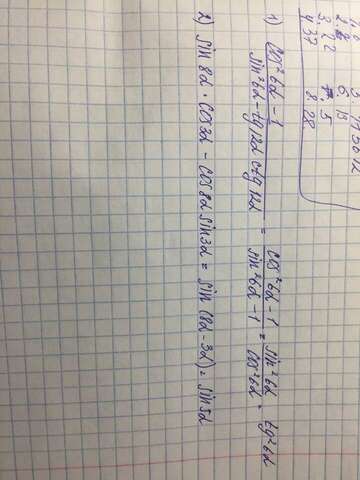 2. 2
3. 22
4 37
6. 15
7. 5
8. 28
1) cos²6α - 1 / sin²6α - tg 12α ctg 12α = cos²6α - 1 / sin²6α - 1 = sin²6α / cos²6α · tg²6α
2) sin 8α · cos 3α - cos 8α sin 3α = sin (8α - 3α) = sin 5α